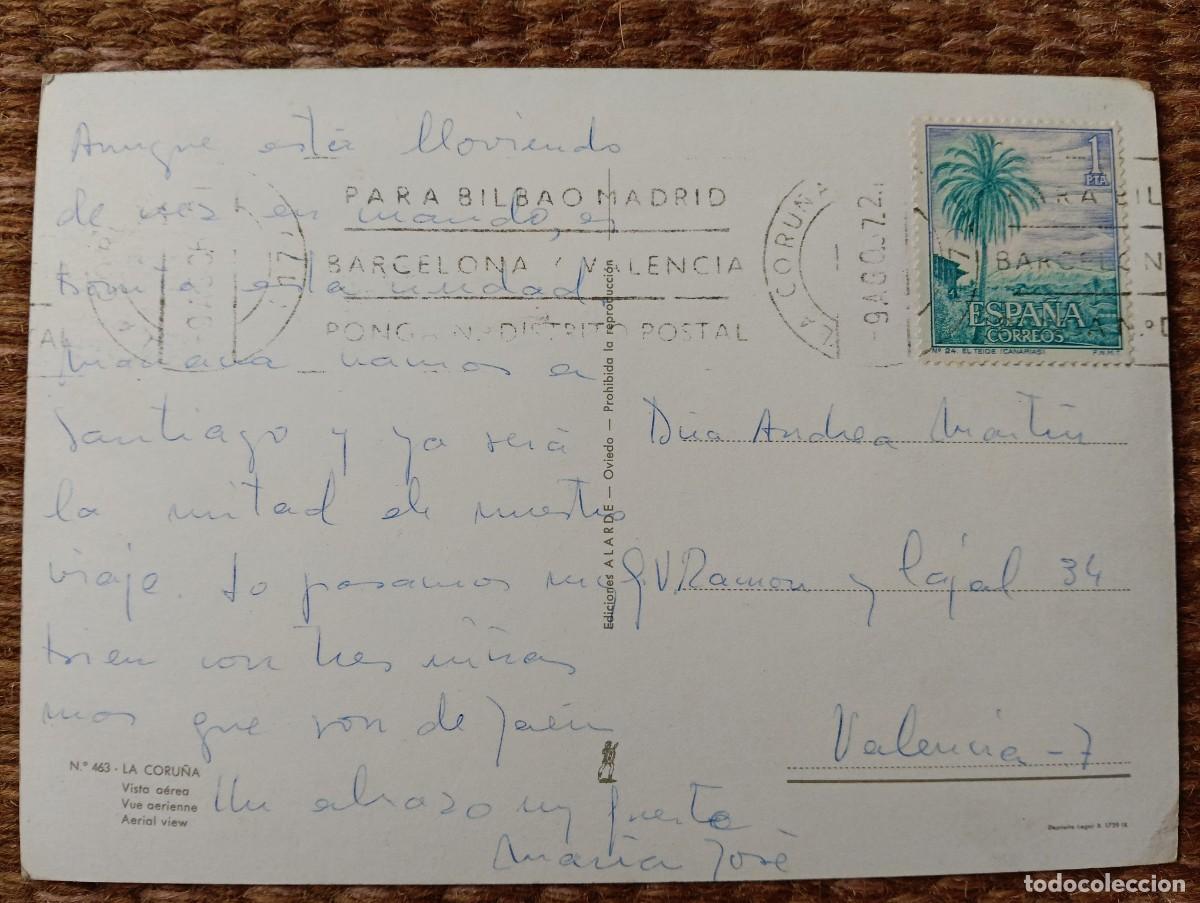 Aunque está lloviendo
de vez en cuando, es
bonita esta ciudad.
Mañana vamos a
Santiago y ya será
la mitad de nuestro
viaje. Lo pasamos muy
bien con tres niñas
mas que son de Jaén
Un abrazo muy fuerte
María José
PARA BILBAO MADRID
BARCELONA Y VALENCIA
PONGAN Nº DISTRITO POSTAL
LA CORUÑA
-9 AGO. 72
1
PTA
ESPAÑA
CORREOS
Nº 24. EL TEIDE (CANARIAS)
F.N.M.T.
PARA BIL
BARCELON
AN.ºD
TAL
-9 AGO
Dña Andrea Martín
G.V. Ramon y Cajal 34
Valencia-7
Ediciones ALARDE — Oviedo — Prohibida la reproducción
N.º 463 - LA CORUÑA
Vista aérea
Vue aerienne
Aerial view
todocoleccion